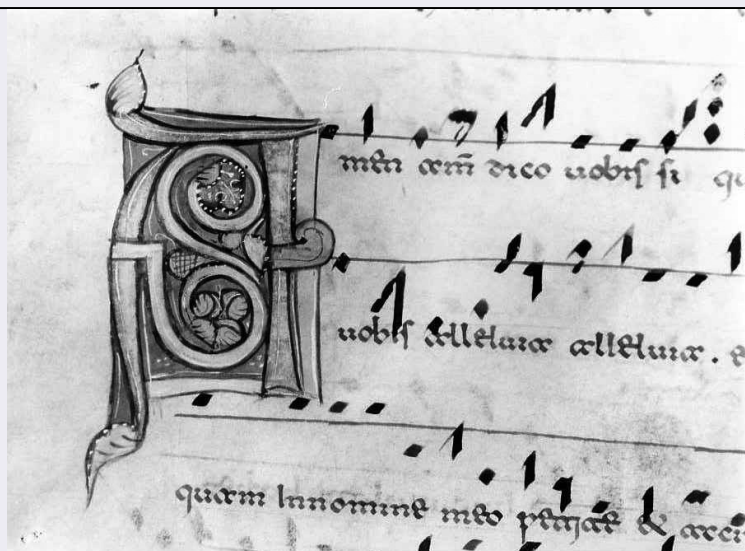 Amen am̅ dico uobis si qu
uobis alleluia alleluia . e
quam In nomine meo petieritis & acci